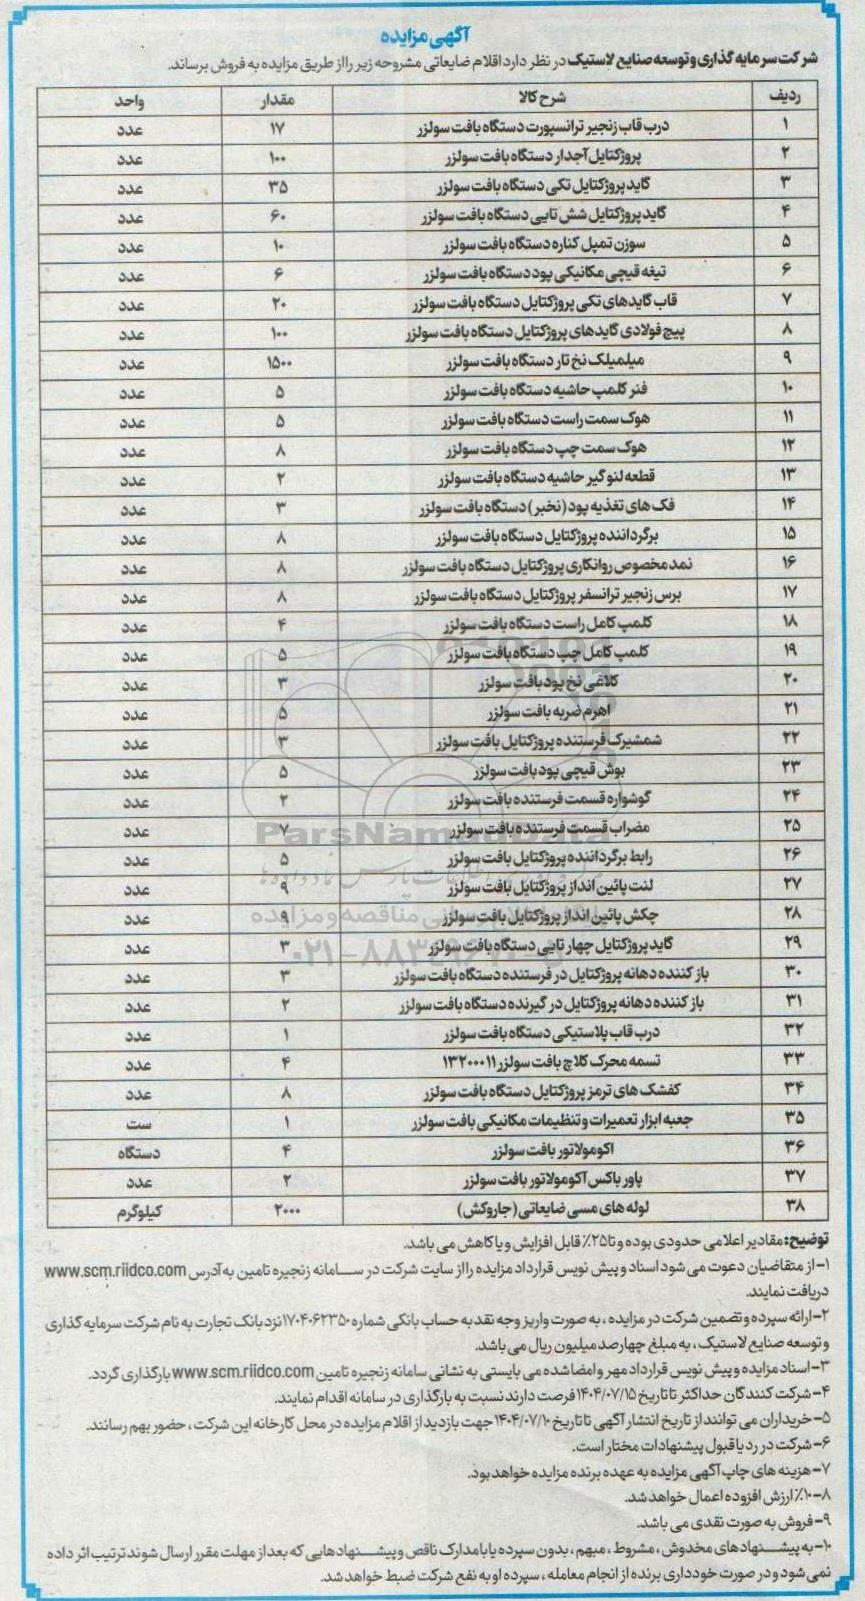 آگهی مزایده
شرکت سرمایه گذاری و توسعه صنایع لاستیک در نظر دارد اقلام ضایعاتی مشروحه زیر را از طریق مزایده به فروش برساند.
ردیف شرح کالا مقدار واحد
۱ درب قاب زنجیر ترانسپورت دستگاه بافت سولزر ۱۷ عدد
۲ پروژکتایل آجدار دستگاه بافت سولزر ۱۰۰ عدد
۳ گاید پروژکتایل تکی دستگاه بافت سولزر ۳۵ عدد
۴ گاید پروژکتایل شش تایی دستگاه بافت سولزر ۶۰ عدد
۵ سوزن تمپل کناره دستگاه بافت سولزر ۱۰ عدد
۶ تیغه قیچی مکانیکی پود دستگاه بافت سولزر ۶ عدد
۷ قاب گایدهای تکی پروژکتایل دستگاه بافت سولزر ۲۰ عدد
۸ پیچ فولادی گایدهای پروژکتایل دستگاه بافت سولزر ۱۰۰ عدد
۹ میلمیلک نخ تار دستگاه بافت سولزر ۱۵۰۰ عدد
۱۰ فنر کلمپ حاشیه دستگاه بافت سولزر ۵ عدد
۱۱ هوک سمت راست دستگاه بافت سولزر ۵ عدد
۱۲ هوک سمت چپ دستگاه بافت سولزر ۸ عدد
۱۳ قطعه لنو گیر حاشیه دستگاه بافت سولزر ۲ عدد
۱۴ فک های تغذیه پود (نخبر) دستگاه بافت سولزر ۳ عدد
۱۵ برگرداننده پروژکتایل دستگاه بافت سولزر ۸ عدد
۱۶ نمد مخصوص روانکاری پروژکتایل دستگاه بافت سولزر ۸ عدد
۱۷ برس زنجیر ترانسفر پروژکتایل دستگاه بافت سولزر ۸ عدد
۱۸ کلمپ کامل راست دستگاه بافت سولزر ۴ عدد
۱۹ کلمپ کامل چپ دستگاه بافت سولزر ۵ عدد
۲۰ کلاغی نخ پود بافت سولزر ۳ عدد
۲۱ اهرم ضربه بافت سولزر ۵ عدد
۲۲ شمشیرک فرستنده پروژکتایل بافت سولزر ۳ عدد
۲۳ بوش قیچی پود بافت سولزر ۵ عدد
۲۴ گوشواره قسمت فرستنده بافت سولزر ۲ عدد
۲۵ مضراب قسمت فرستنده بافت سولزر ۷ عدد
ParsNamadData
۲۶ رابط برگرداننده پروژکتایل بافت سولزر ۵ عدد
۲۷ لنت پائین انداز پروژکتایل بافت سولزر ۹ عدد
۲۸ چکش پائین انداز پروژکتایل بافت سولزر ۹ عدد
مناقصه و مزایده
۲۹ گاید پروژکتایل چهار تایی دستگاه بافت سولزر ۳ عدد
۳۰ باز کننده دهانه پروژکتایل در فرستنده دستگاه بافت سولزر ۳ عدد
۳۱ باز کننده دهانه پروژکتایل در گیرنده دستگاه بافت سولزر ۲ عدد
۳۲ درب قاب پلاستیکی دستگاه بافت سولزر ۱ عدد
۳۳ تسمه محرک کلاچ بافت سولزر ۱۳۲۰۰۰۱۱ ۴ عدد
۳۴ کفشک های ترمز پروژکتایل دستگاه بافت سولزر ۸ عدد
۳۵ جعبه ابزار تعمیرات و تنظیمات مکانیکی بافت سولزر ۱ ست
۳۶ اکومولاتور بافت سولزر ۴ دستگاه
۳۷ پاور باکس آکومولاتور بافت سولزر ۲ عدد
۳۸ لوله های مسی ضایعاتی (جاروکش) ۲۰۰۰ کیلوگرم
توضیح: مقادیر اعلامی حدودی بوده و تا ۲۵٪ قابل افزایش و یا کاهش می باشد.
۱- از متقاضیان دعوت می شود اسناد و پیش نویس قرارداد مزایده را از سایت شرکت در سامانه زنجیره تامین به آدرس www.scm.riidco.com
دریافت نمایند.
۲- ارائه سپرده و تضمین شرکت در مزایده، به صورت واریز وجه نقد به حساب بانکی شماره ۱۷۰۴۰۶۲۳۵۰ نزد بانک تجارت به نام شرکت سرمایه گذاری
و توسعه صنایع لاستیک، به مبلغ چهارصد میلیون ریال می باشد.
۳- اسناد مزایده و پیش نویس قرارداد مهر و امضا شده می بایستی به نشانی سامانه زنجیره تامین www.scm.riidco.com بارگذاری گردد.
۴- شرکت کنندگان حداکثر تا تاریخ ۱۴۰۴/۰۷/۱۵ فرصت دارند نسبت به بارگذاری در سامانه اقدام نمایند.
۵- خریداران می توانند از تاریخ انتشار آگهی تا تاریخ ۱۴۰۴/۰۷/۱۰ جهت بازدید از اقلام مزایده در محل کارخانه این شرکت، حضور بهم رسانند.
۶- شرکت در رد یا قبول پیشنهادات مختار است.
۷- هزینه های چاپ آگهی مزایده به عهده برنده مزایده خواهد بود.
۸- ۱۰٪ ارزش افزوده اعمال خواهد شد.
۹- فروش به صورت نقدی می باشد.
۱۰- به پیشنهادهای مخدوش، مشروط، مبهم، بدون سپرده یا با مدارک ناقص و پیشنهادهایی که بعد از مهلت مقرر ارسال شوند ترتیب اثر داده
نمی شود و در صورت خودداری برنده از انجام معامله، سپرده او به نفع شرکت ضبط خواهد شد.